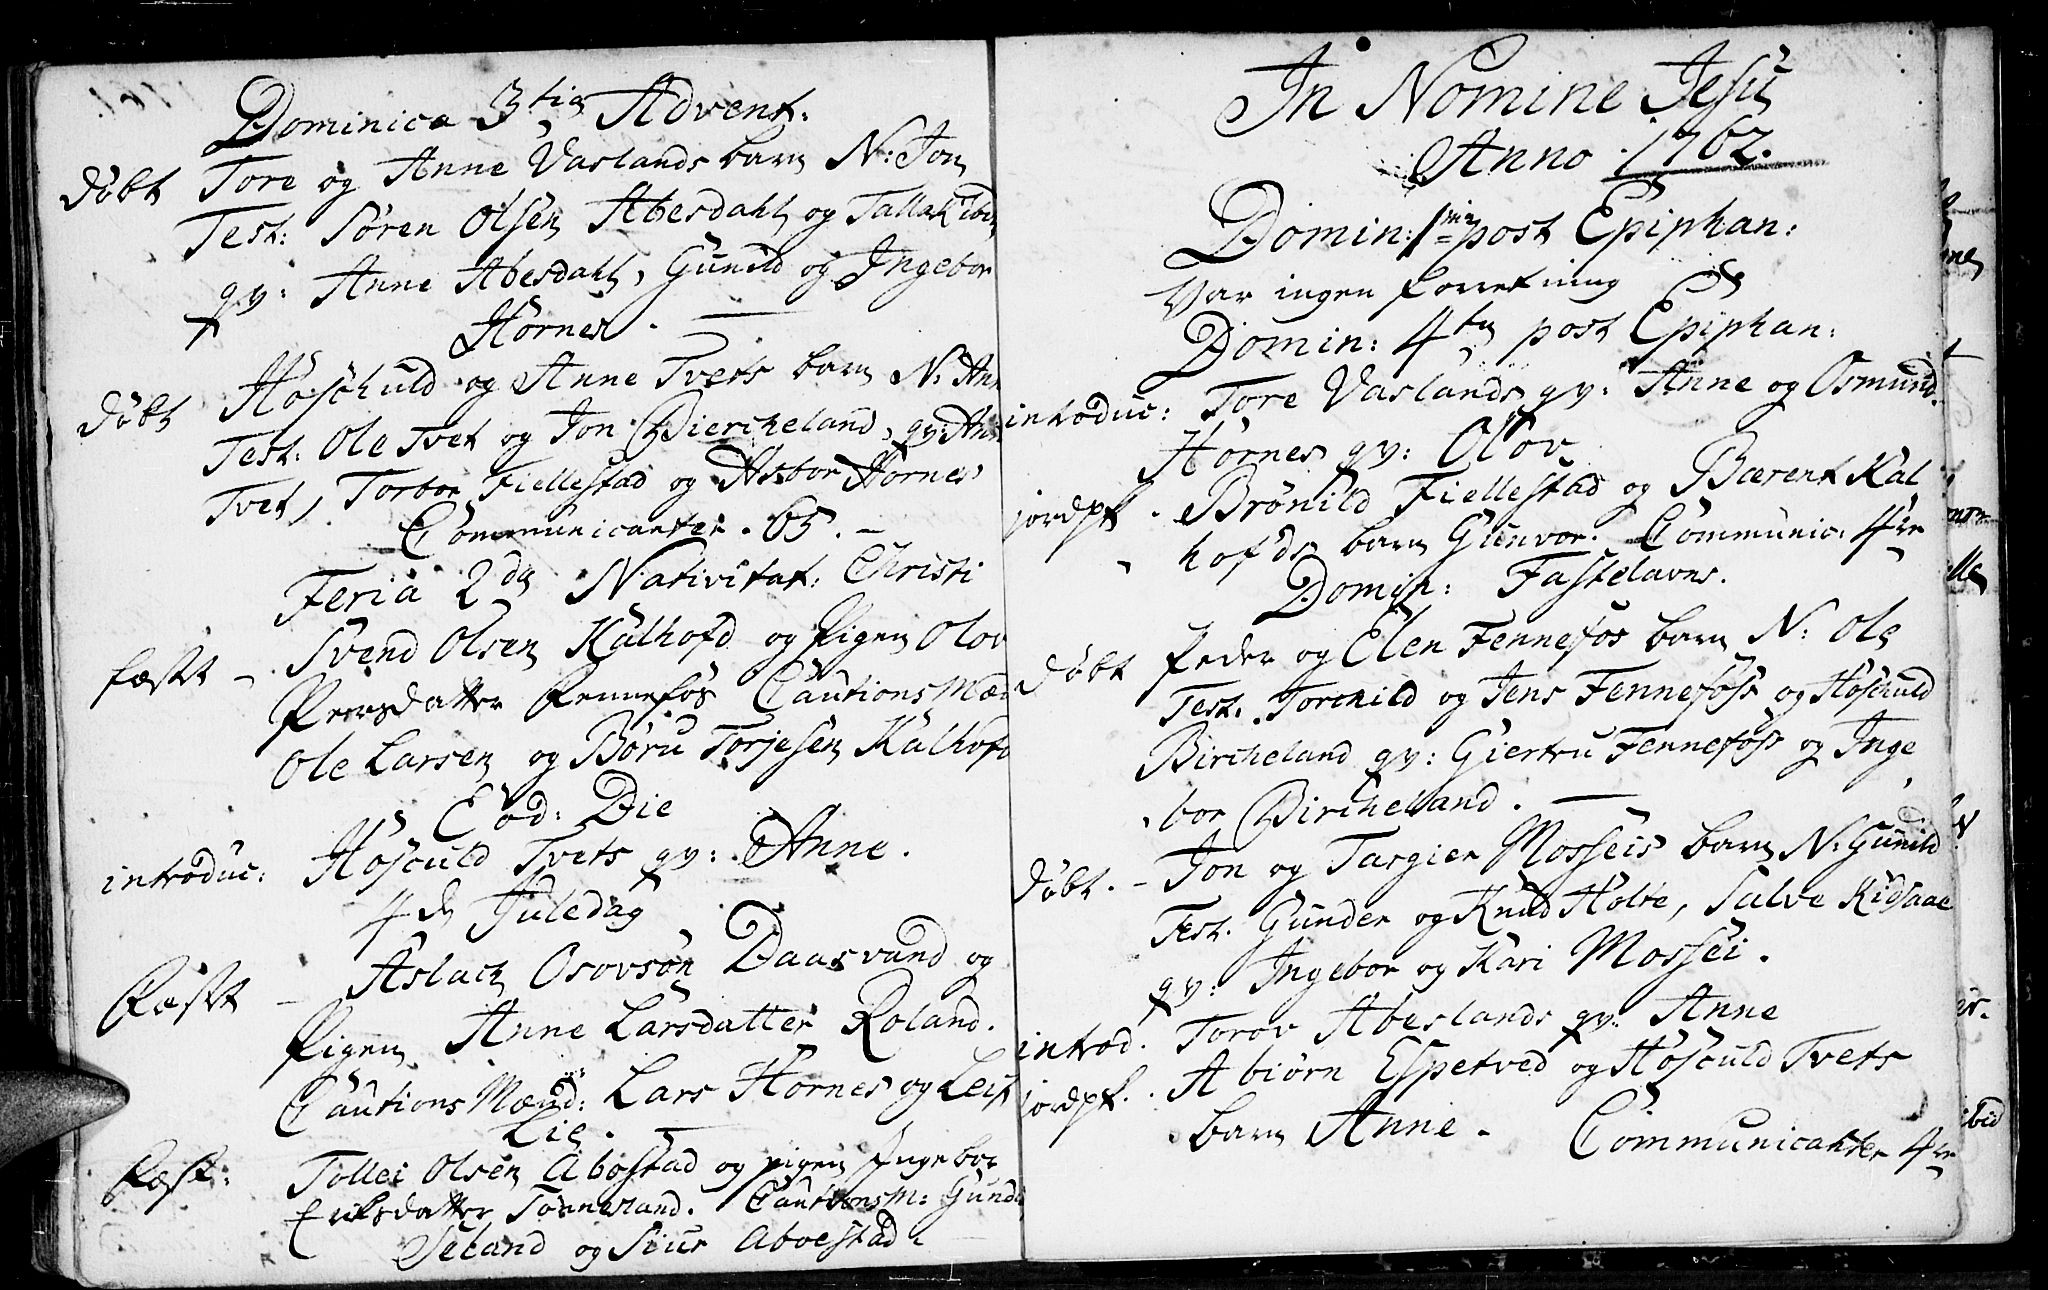 Dominica 3tia Advent:
døbt Tore og Anne Vaslands barn N: Jon
Test: Søren Olsen Abesdahl og Tallak ibid
qv: Anne Abesdahl, Gunild og Ingebor
Hornes. —
døbt Høschuld og Anne Tvets barn N: An
Test: Ole Tvet og Jon Bircheland, qv: An
Tvet, Torbor Fiellestad og Asbor Hornes
Communicanter. 65. —
Feria 2da Nativitat: Christi
fæst – Svend Olsen Kalhofd og Pigen Olov
Peersdatter Fennefos Cautions Mæn
Ole Larsen og Børu Torjesen Kalhofd
Eod: Die
introduc: Høsculd Tvets qv: Anne.
4de Juledag
Fæst – Aslach Osovsøn Daasvand og
Pigen Anne Larsdatter Roland.
Cautions Mænd: Lars Hornes og Leif
Lie. —
Fæst: Tollei Olsen Abostad og pigen Ingebor
Eriksdatter Tønnesland. CautionsM: Gund
Seland og Siur Aboestad
In Nomine Jesu
Anno 1762.
Domin: 1ma post Epiphan:
Var ingen forretning
Domin: 4ta post Epiphan:
introduc: Tore Vaslands qv: Anne og Osmund
Hornes qv: Olov
jordpf. Brønild Fiellestad og Bærent Kal
hofds barn Gunvor. Communic: 4re
Domin: Fastelavns.
døbt Peder og Elen Fennefos barn N: Ole
Test: Torchild og Jens Fennefoss og Høschuld
Bircheland qv: Giertru Fennefoss og Inge
bor Bircheland. —
døbt. – Jon og Targier Mosseis barn N: Gunild
Test. Gunder og Knud Holte, Salve Kidsaae
qv: Ingebor og Kari Mossei.
introd. Torov Abeslands qv: Anne
jordpf. Abiørn Espetved og Høsculd Tvets
barn Anne. Communicanter 4re